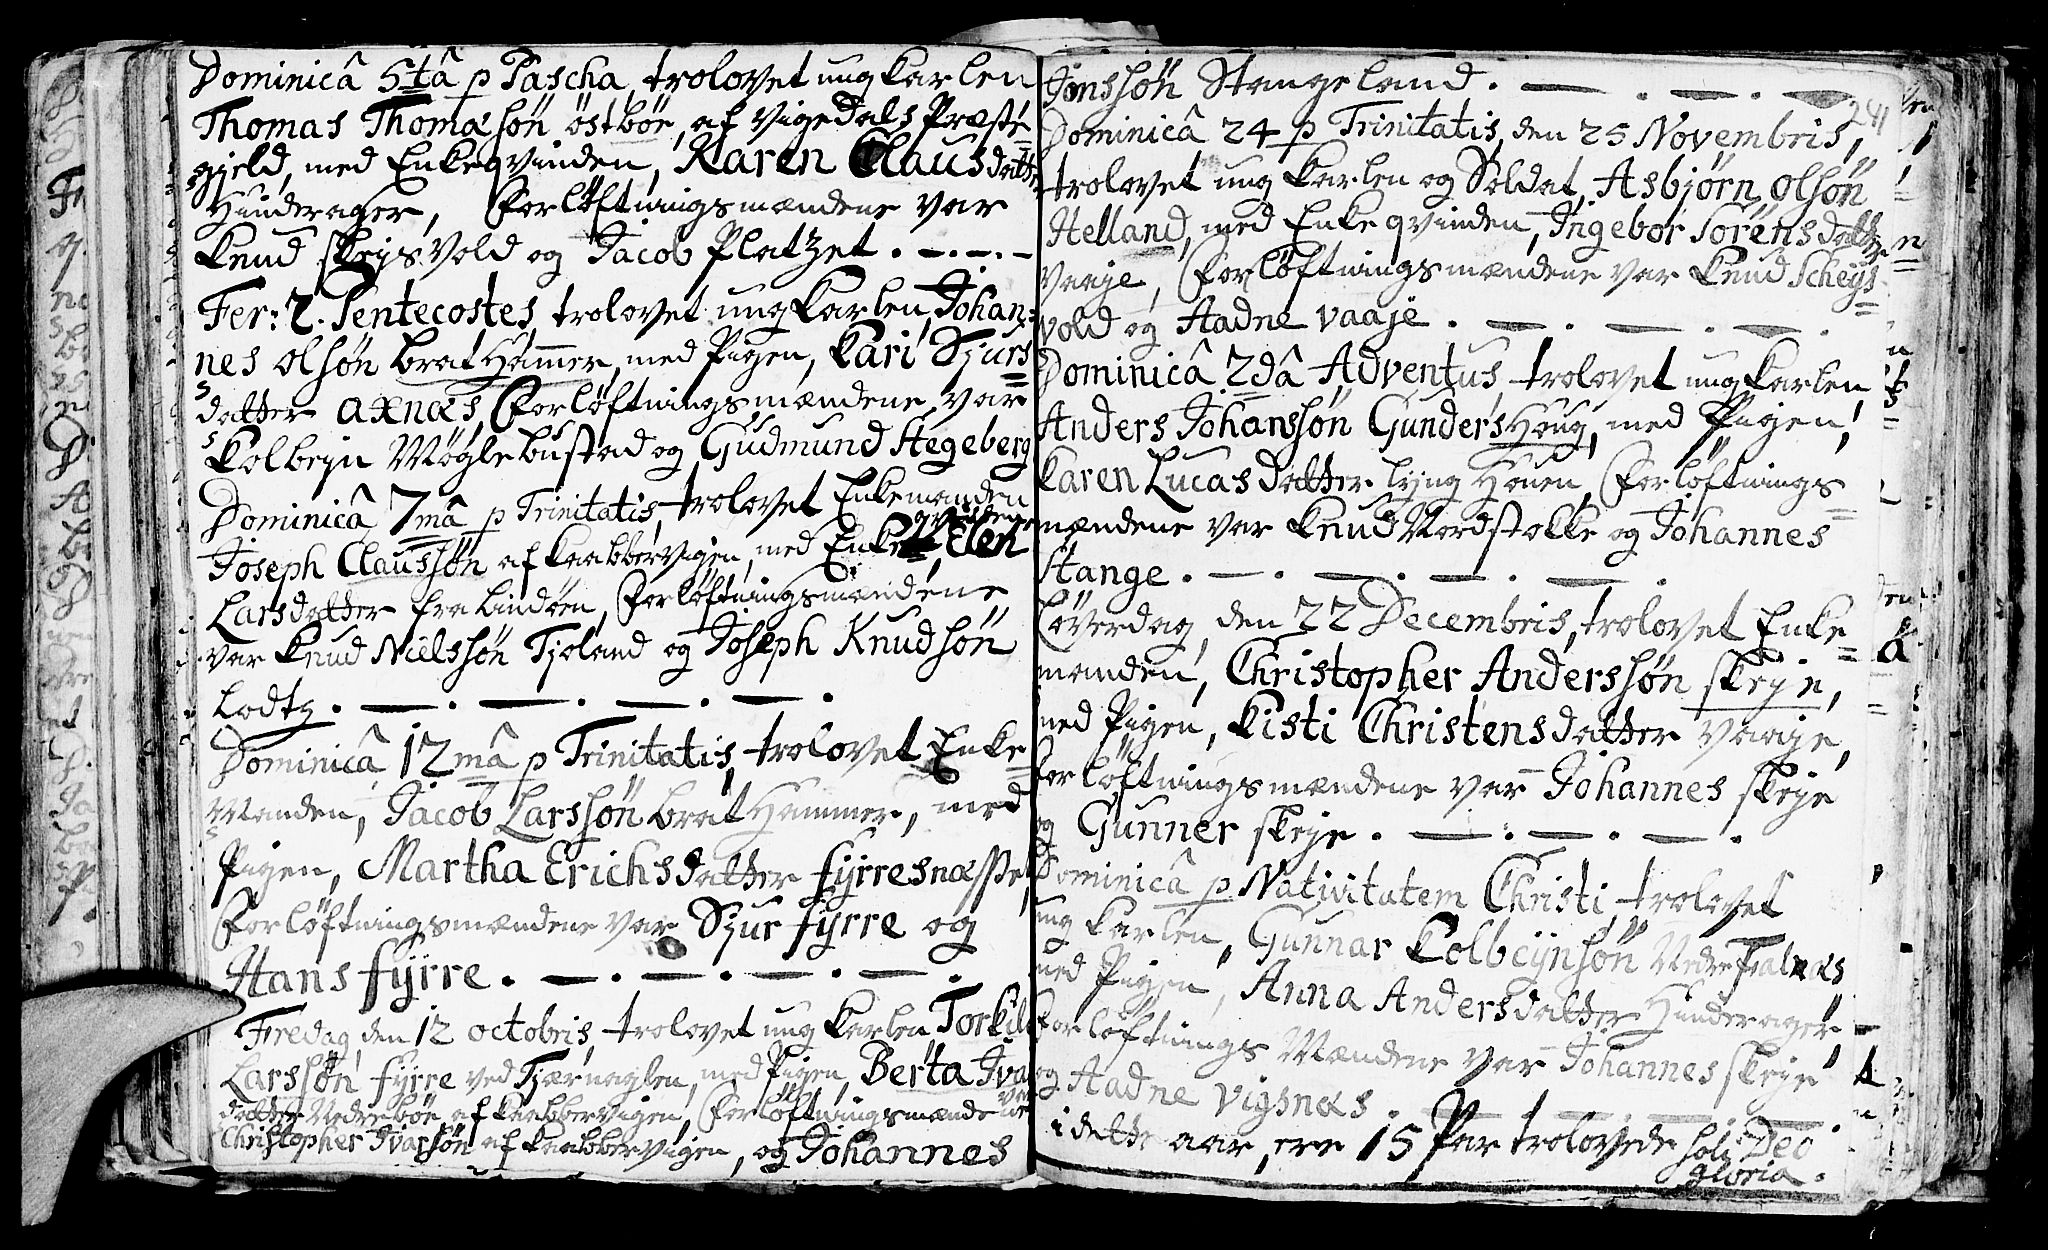 Dominicâ 5tâ p Pascha, trolovet ungkarlen
Thomas Thomæsøn østbøe, af Vigedals Præste=
gjeld, med Enkeqvinden, Karen Clausdatter
Hunderager, Forløftningsmændene var
Knud skejsvold og Jacob Platzet. —.—.—
Fer: 2. Pentecostes, trolovet ungkarlen, Johan=
nes olsøn bratHammer, med Pigen, Kari Sjurs=
datter axnæs, Forløftningsmændene var
Kolbejn Møglebustad og Gudmund Hegeberg
Dominicâ 7mâ p Trinitatis, trolovet Enkemanden
Joseph Claussøn af Kaabbervigen, med Enkeqvinden, Elen
Larsdatter fra Lindøen, Forløftningsmændene
var Knud Nielssøn Tjoland og Joseph Knudsøn
Lodtz. —. —. —. —.
Dominicâ 12mâ p Trinitatis, trolovet Enke=
Manden, Jacob Larssøn bratHammer, med
Pigen, Martha Erichsdatter fyrresnæsset,
Forløftningsmændene var Sjur fyrre og
Hans fyrre. —. —. —. —.
Fredag, den 12 octobris, trolovet ungkarlen, Torkild
Larssøn fyrre ved Tjærnaglen, med Pigen, Berta Ivars
datter Nedrebøe af Kaabbervigen, Forløftningsmændene var
Christopher Ivarsøn af Kaabbervigen, og Johannes
Jonssøn Stangeland. —. —. —
241
Dominicâ 24 p Trinitatis, den 25 Novembris,
trolovet ungkarlen og Soldat, Asbjørn olsøn
Helland, med Enkeqvinden, Ingebor Sørensdatter
Vaaje, Forløftningsmændene var Knud Schejs=
vold og Aadne vaaje. —. —. —.
Dominicâ 2dâ Adventus, trolovet ungkarlen,
Anders Johanssøn GundersHoug, med Pigen,
Karen Lucasdatter lyngHouen, Forløftnings=
mændene var Knud Nordstokke og Johannes
Stange. —. —. —. —.
Løverdag, den 22 Decembris, trolovet Enke=
manden, Christopher Anderssøn skeje,
med Pigen, Kisti Christensdatter Vaaje,
Forløftningsmændene var Johannes skeje
og Gunner skeje. —. —. —.
Dominicâ p Nativitatem Christi, trolovet
ungkarlen, Gunnar Kolbejnsøn Nedre Fralnæs
med Pigen, Anna Andersdatter Hunderager,
Forløftnings Mændene var Johannes skeje
og Aadne vigsnæs. —. —. —.
i dette aar, ere 15 Par trolovede soli Deo
gloria.